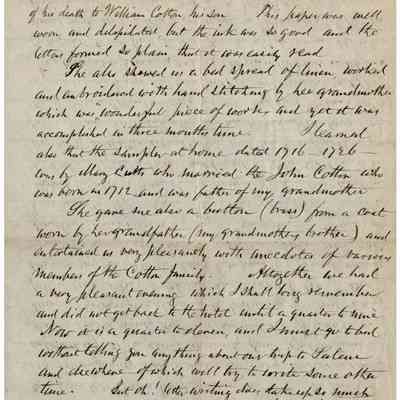 of his death to William Cotton his son This paper was well
worn and dilapidated, but the ink was so good and the
letters formed so plain that it was easily read
She also showed us a bed spread of linen, worked
and embroidered with hand stitching by her grandmother
which was wonderful piece of work, and yet it was
accomplished in three months time. I learned
also that the sampler at home dated 1716 - 1726 -
was by Mary Cutts who married the John Cotton who
was born in 1712 and was father of my grandmother
She gave me also a button (brass) from a coat
worn by her grandfather (my grandmothers brother) and
entertained us very pleasantly with anecdotes of various
members of the Cotton family. Altogether we had
a very pleasant evening which I shall long remember
and did not get back to the hotel until a quarter to nine
Now it is a quarter to eleven, and I must go to bed
without telling you anything about our trip to Salem
and elsewhere of which will try to write some other
time. But oh! letter writing does take up so much